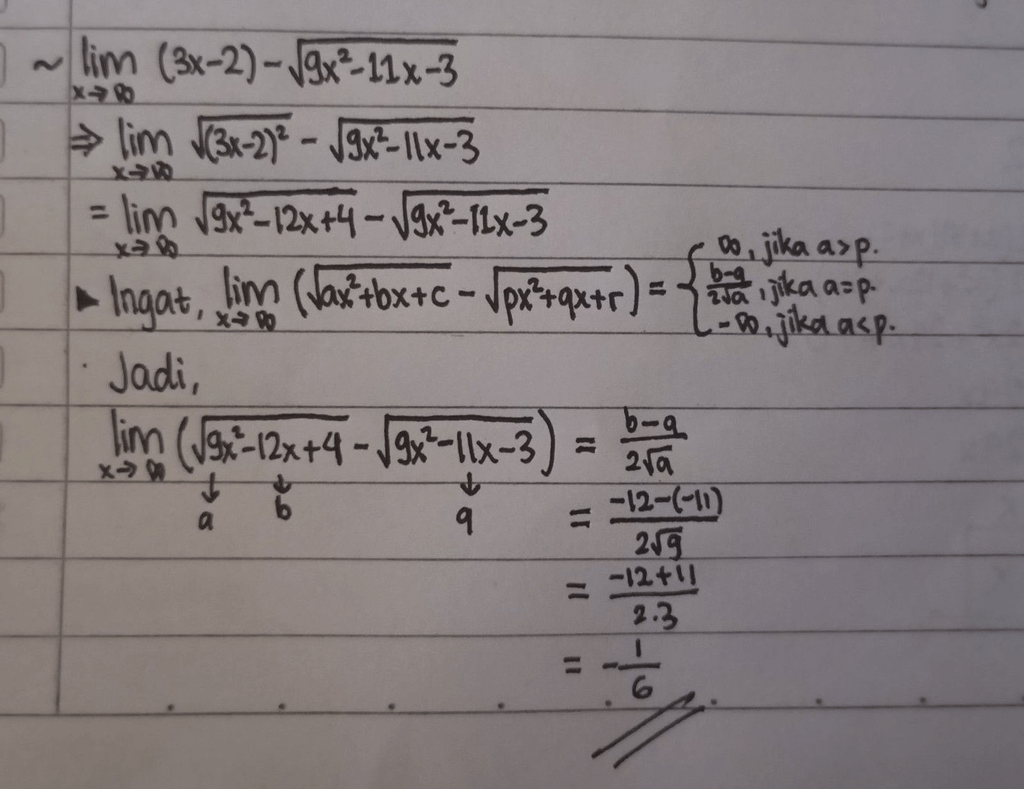 ~ lim x→∞ (3x-2) - √(9x²-11x-3)
⇒ lim x→∞ √((3x-2)²) - √(9x²-11x-3)
= lim x→∞ √(9x²-12x+4) - √(9x²-11x-3)
▶ Ingat, lim x→∞ (√(ax²+bx+c) - √(px²+qx+r)) = { ∞, jika a>p.
(b-q)/(2√a), jika a=p.
-∞, jika a<p.
· Jadi,
lim x→∞ (√(9x²-12x+4) - √(9x²-11x-3)) = (b-q)/(2√a)
↓ a ↓ b ↓ q
= (-12-(-11))/(2√9)
= (-12+11)/(2.3)
= -1/6